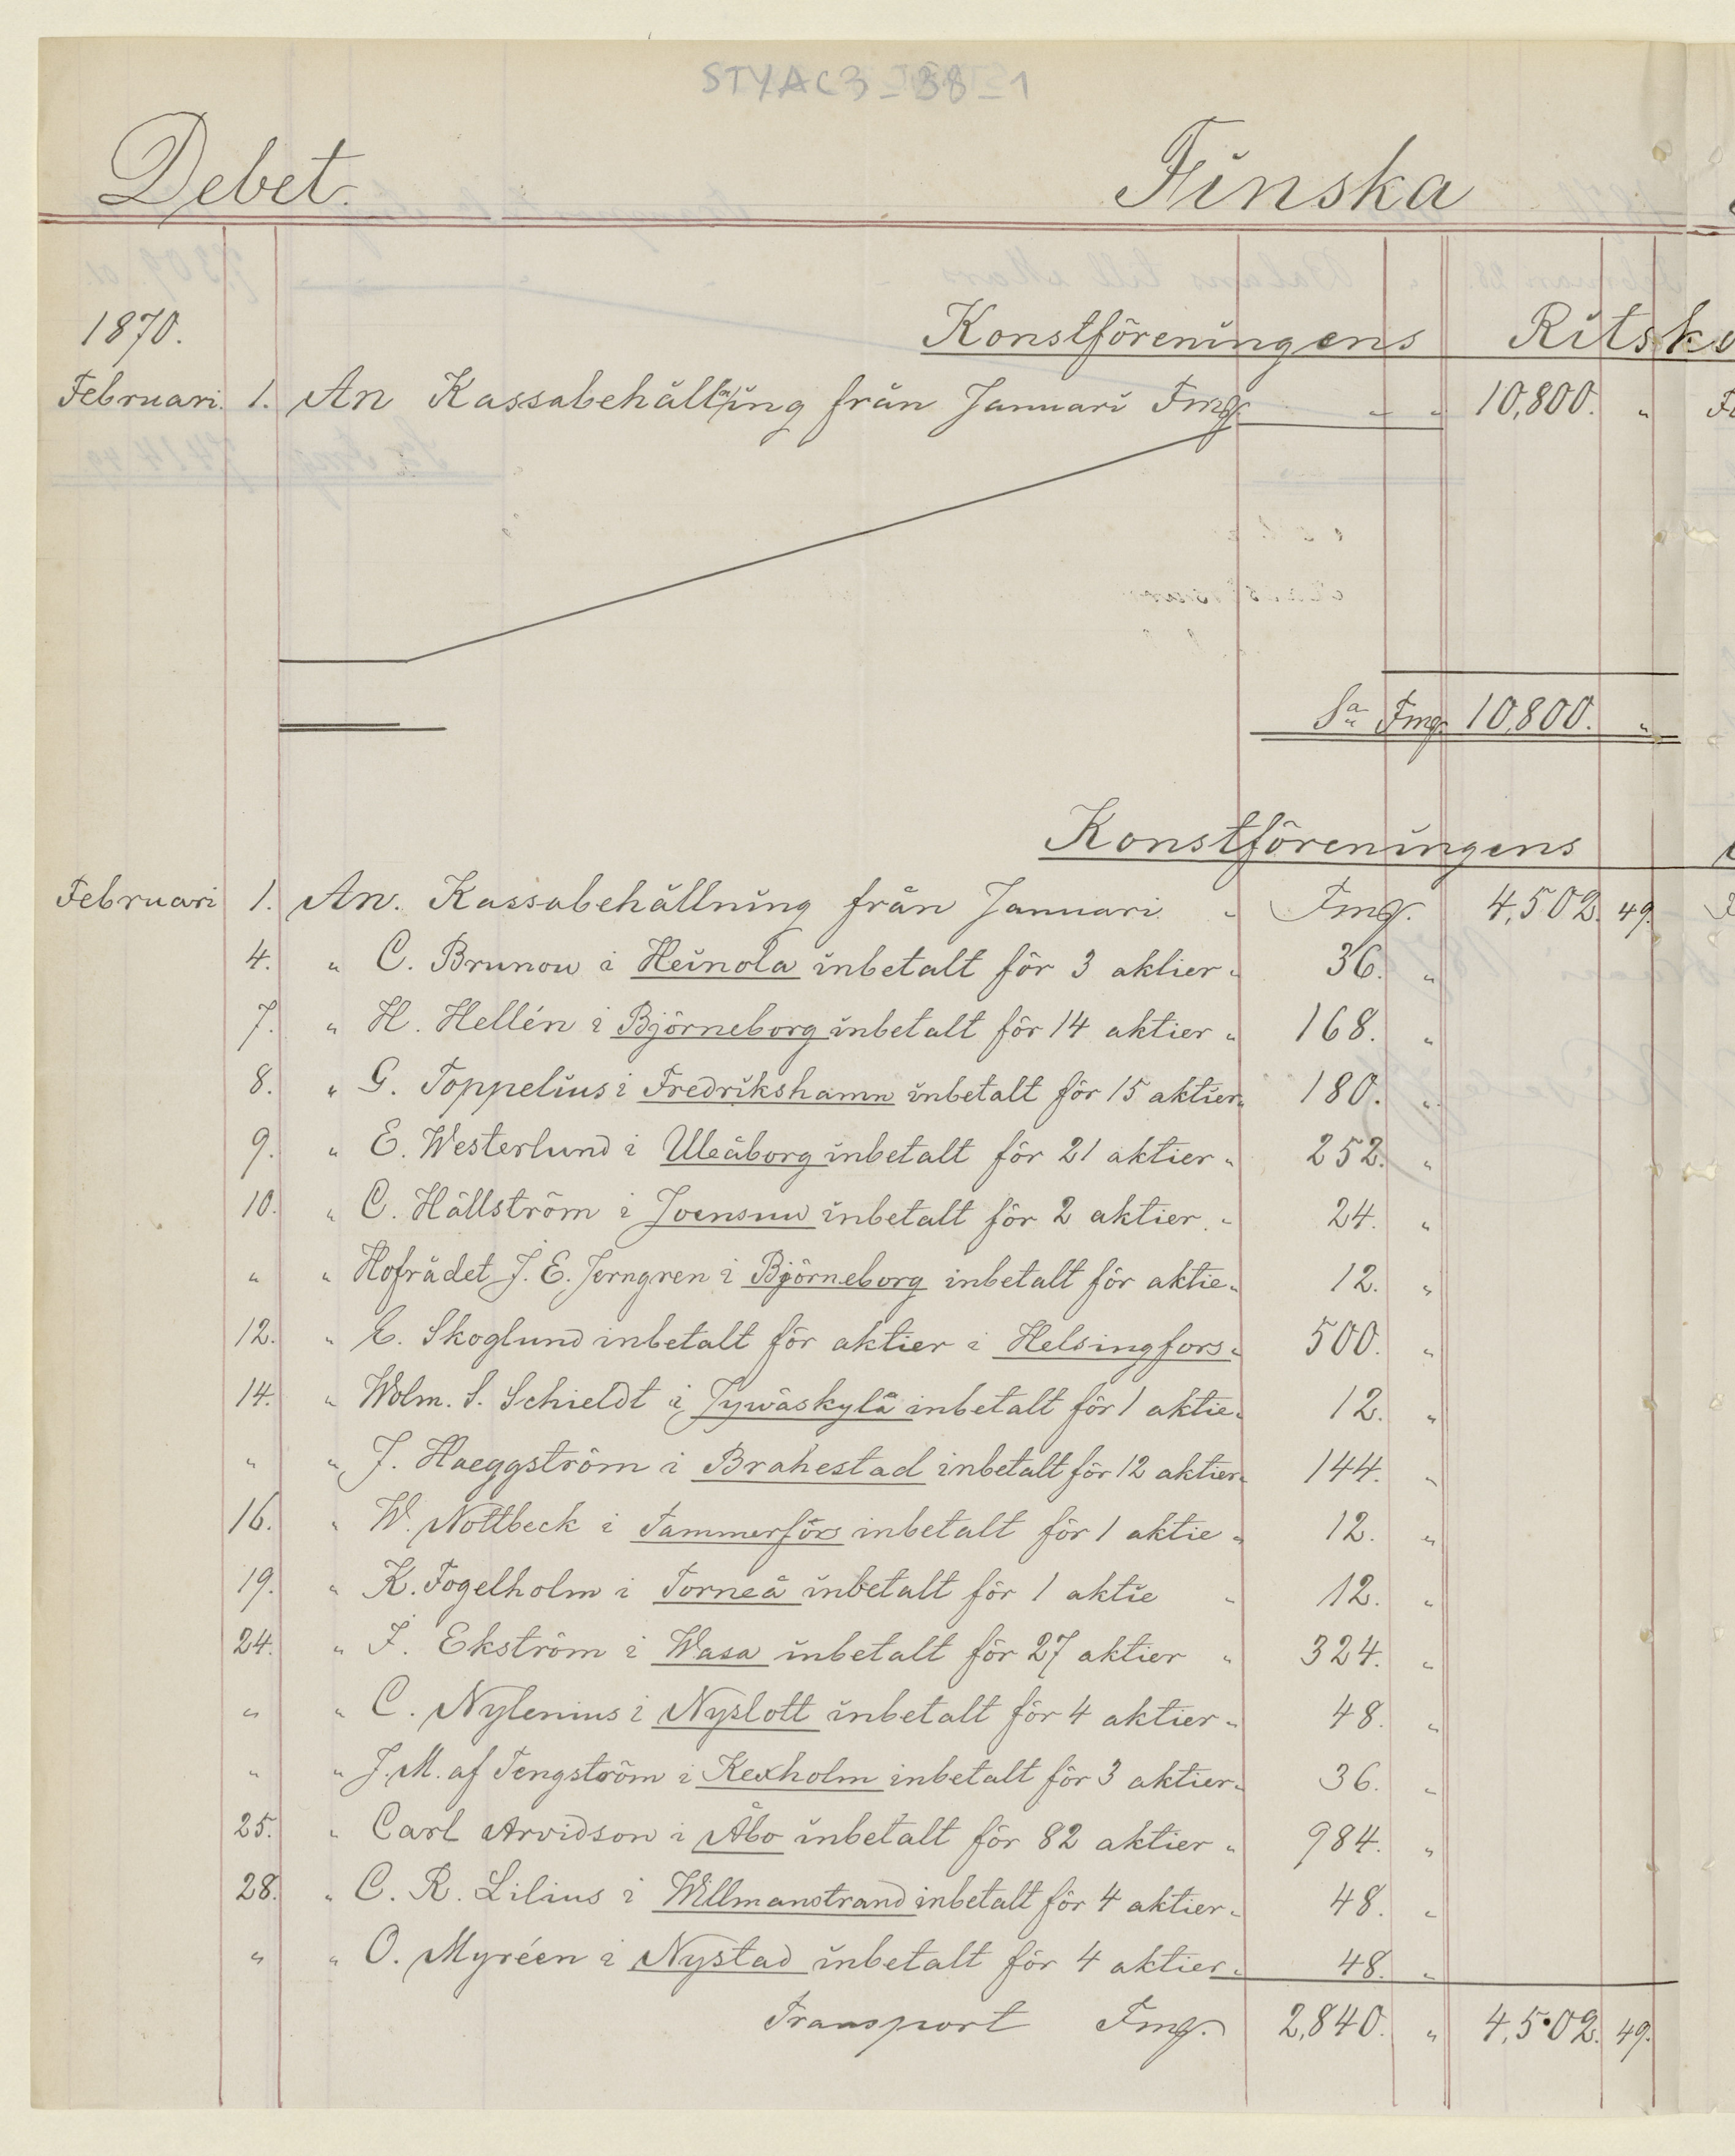 STYAC3-38-1
Debet. Finska
1870. Konstföreningens Ritsko
Februari. 1. An Kassabehållning från Januari Fmg " " 10,800. "
Sa Fmg. 10,800. "
Konstföreningens
Februari 1. An. Kassabehållning från Januari " Fmg. 4,502. 49.
4. " C. Brunou i Heinola inbetalt för 3 aktier " 36. "
7. " H. Hellén i Björneborg inbetalt för 14 aktier " 168. "
8. " G. Toppelius i Fredrikshamn inbetalt för 15 aktier " 180. "
9. " E. Westerlund i Uleåborg inbetalt för 21 aktier " 252. "
10. " C. Hällström i Joensuu inbetalt för 2 aktier. " 24. "
" " Hofrådet J. E. Jerngren i Björneborg inbetalt för aktie " 12. "
12. " E. Skoglund inbetalt för aktier i Helsingfors " 500. "
14. " Wolm. S. Schieldt i Jywäskylä inbetalt för 1 aktie " 12. "
" " J. Haeggström i Brahestad inbetalt för 12 aktier " 144. "
16. " W. Nottbeck i Tammerfors inbetalt för 1 aktie " 12. "
19. " K. Fogelholm i Torneå inbetalt för 1 aktie " 12. "
24. " F. Ekström i Wasa inbetalt för 27 aktier " 324. "
" " C. Nylenius i Nyslott inbetalt för 4 aktier " 48. "
" " J. M. af Tengström i Kexholm inbetalt för 3 aktier " 36. "
25. " Carl Arvidson i Åbo inbetalt för 82 aktier " 984. "
28. " C. R. Lilius i Willmanstrand inbetalt för 4 aktier " 48. "
" " O. Myréen i Nystad inbetalt för 4 aktier " 48. "
Transport Fmg. 2,840. " 4,502. 49.